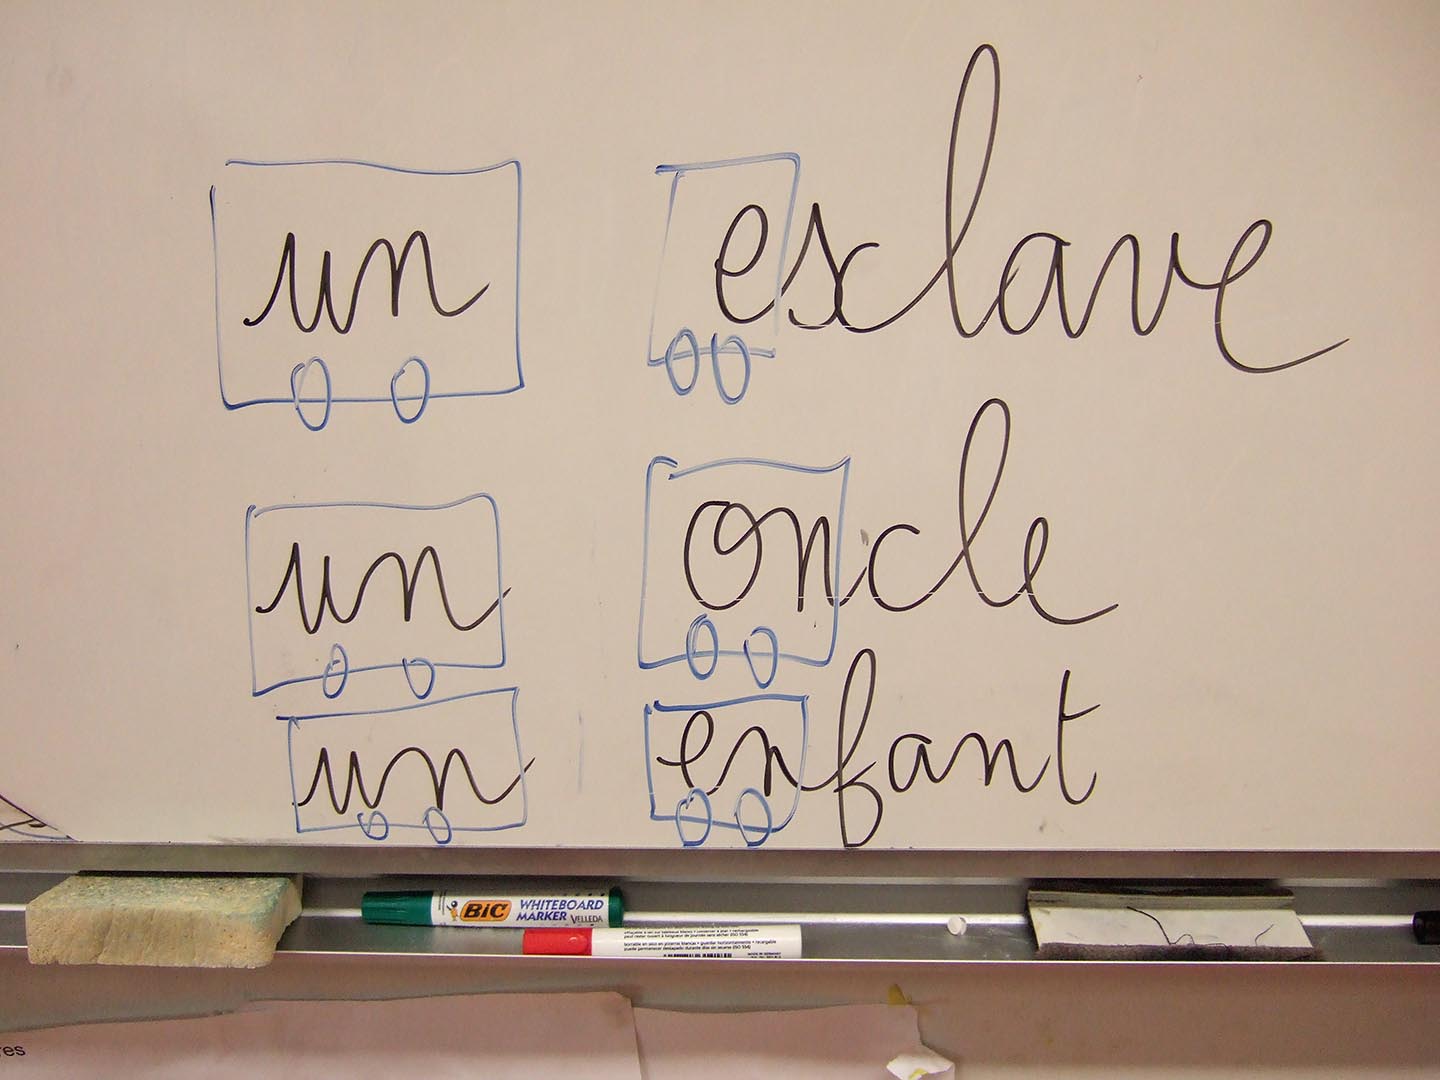 un esclave
un oncle
un enfant
BIC WHITEBOARD MARKER VELLEDA
res